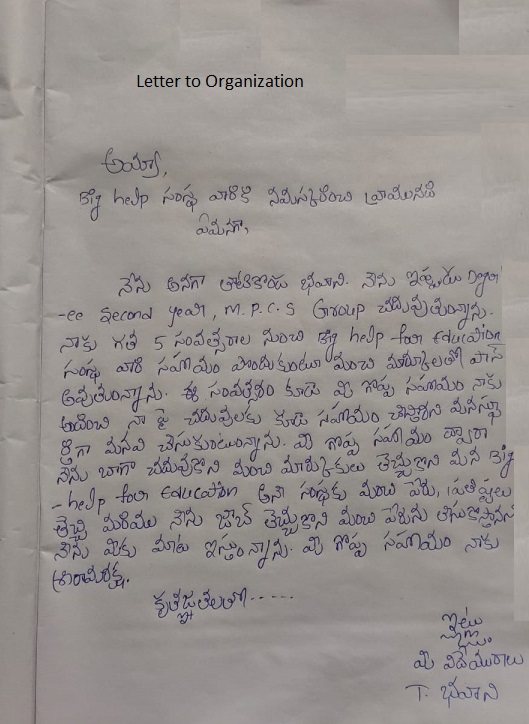 Letter to Organization
అయ్యా,
Big help సంస్థ వారికి నమస్కరించి వ్రాయునది
ఏమనగా,
నేను అనగా తోటకూర భవాని. నేను ఇప్పుడు Degr
-ee second year, M.P.C.S Group చదువుతున్నాను.
నాకు గత 5 సంవత్సరాల నుంచి Big help for Education
సంస్థ వారి సహాయం పొందుకుంటూ మంచి మార్కులతో పాస్
అవుతున్నాను. ఈ సంవత్సరం కూడా మీ గొప్ప సహాయం నాకు
అందించి నా పై చదువులకు కూడా సహాయం చేస్తారని మనస్ఫూ
ర్తిగా మనవి చేసుకుంటున్నాను. మీ గొప్ప సహాయం ద్వారా
నేను బాగా చదువుకొని మంచి మార్కులు తెచ్చుకొని మన Big
-help for Education అనే సంస్థకు మంచి పేరు, ప్రతిష్టలు
తెచ్చి మరియు నేను జాబ్ తెచ్చుకొని మంచి పేరును తీసుకొస్తానని
నేను మీకు మాట ఇస్తున్నాను. మీ గొప్ప సహాయం నాకు
శ్రీరామరక్ష.
కృతజ్ఞతలతో......
ఇట్లు
మీ విధేయురాలు
T. భవాని